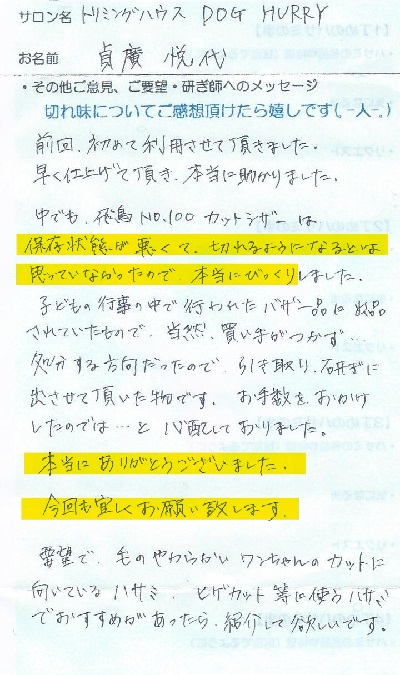 サロン名 トリミングハウス DOG HURRY
お名前 貞廣 悦代
・その他ご意見、ご要望・研ぎ師へのメッセージ
切れ味についてご感想頂けたら嬉しです(,-人-,)
前回、初めて利用させて頂きました。
早く仕上げて頂き、本当に助かりました。
中でも、飛鳥NO.100 カットシザー は
保存状態が悪くて、切れるようになるとは
思っていなかったので、本当にびっくりしました。
子どもの行事の中で行われたバザー品に出品
されていたもので、当然、買い手がつかず
処分する方向だったので、引き取り、研ぎに
出させて頂いた物です。 お手数をおかけ
したのでは…と心配しておりました。
本当にありがとうございました。
今回も宜しくお願い致します。
要望で、毛のやわらかい ワンちゃんのカットに
向いているハサミ、ヒゲカット等に使うハサミ
でおすすめがあったら、紹介して欲しいです。